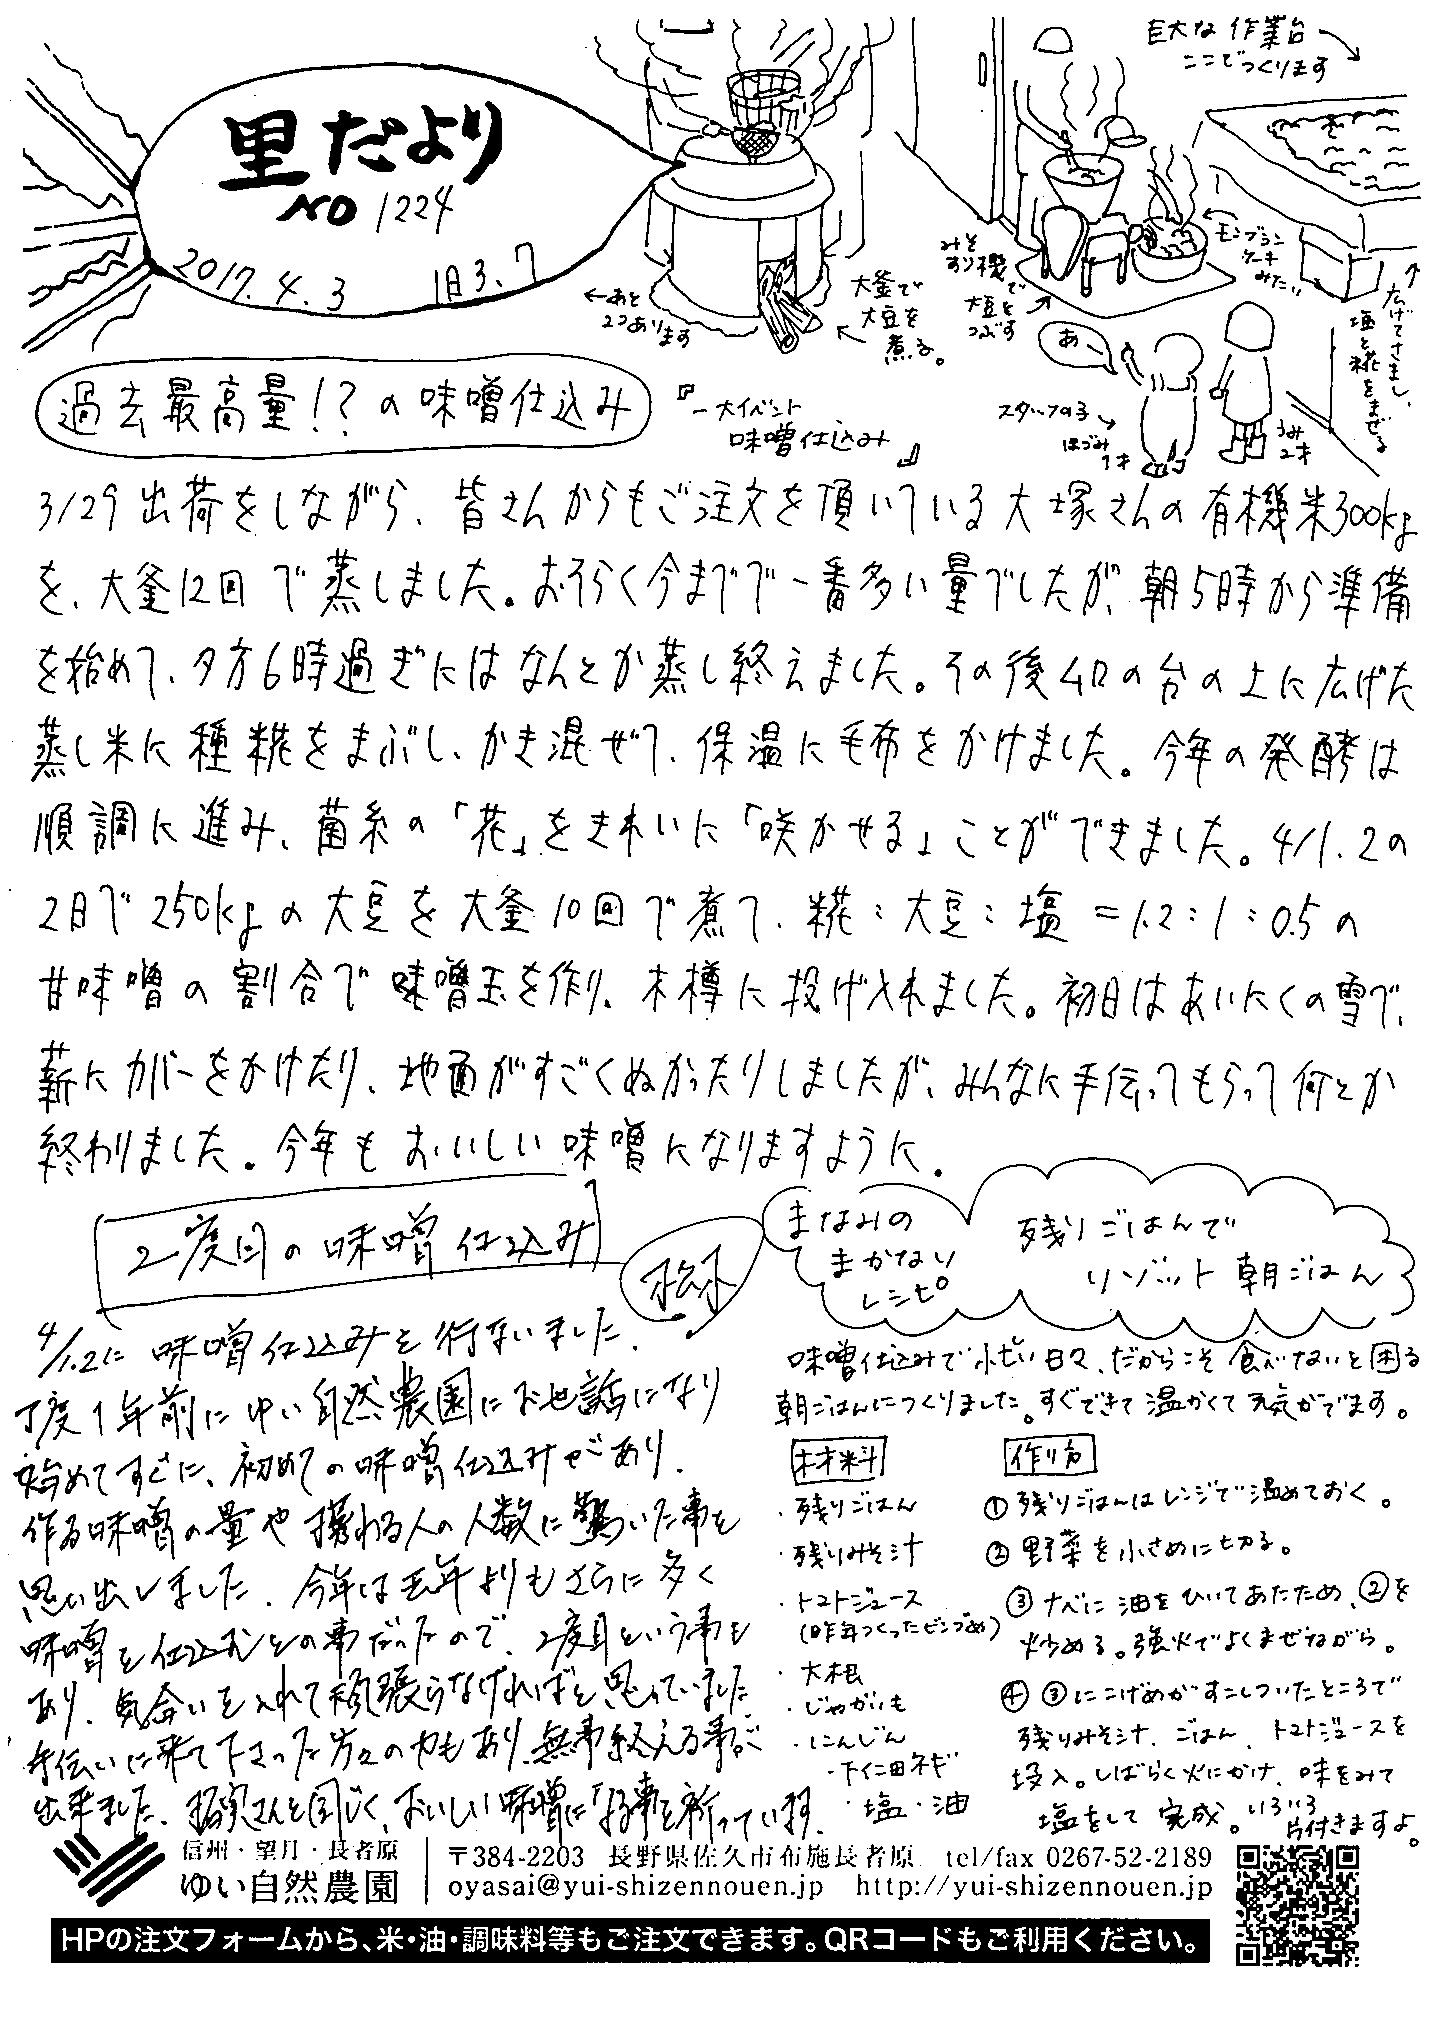 里だより
NO 1224
2017.4.3 旧3.7
巨大な作業台
ここでつくります
みそすり機で大豆をつぶす
モンブランケーキみたい
←あと2つあります
大釜で大豆を煮る。
広げてさまし、塩と糀をまぜる
あー
スタッフの子
はづみ1才
うみ2才
『一大イベント
味噌仕込み』
過去最高量!?の味噌仕込み
3/29出荷をしながら、皆さんからもご注文を頂いている大塚さんの有機米300kg
を、大釜12回で蒸しました。おそらく今までで一番多い量でしたが、朝5時から準備
を始めて、夕方6時過ぎにはなんとか蒸し終えました。その後ムロの台の上に広げた
蒸し米に種糀をまぶし、かき混ぜて、保温に毛布をかけました。今年の発酵は
順調に進み、菌糸の「花」をきれいに「咲かせる」ことができました。4/1.2の
2日で250kgの大豆を大釜10回で煮て、糀:大豆:塩=1.2:1:0.5の
甘味噌の割合で味噌玉を作り、木樽に投げ入れました。初日はあいにくの雪で、
薪にカバーをかけたり、地面がすごくぬかったりしましたが、みんなに手伝ってもらって何とか
終わりました。今年もおいしい味噌になりますように。
2度目の味噌仕込み
4/1.2に味噌仕込みを行ないました。
丁度1年前にゆい自然農園にお世話になり
始めてすぐに、初めての味噌仕込みがあり、
作る味噌の量や携わる人の人数に驚いた事を
思い出しました。今年は去年よりもさらに多く
味噌を仕込むとの事だったので、2度目という事も
あり、気合いを入れて頑張らなければと思っていました。
手伝いに来て下さった方々の力もあり、無事終える事が
出来ました。皆さんと同じく、おいしい味噌になる事を祈っています。
まなみの
まかない
レシピ
残りごはんで
リゾット朝ごはん
味噌仕込みで忙しい日々、だからこそ食べないと困る
朝ごはんにつくりました。すぐできて温かくて元気がでます。
材料
・残りごはん
・残りみそ汁
・トマトジュース
(昨年つくったビンづめ)
・大根
・じゃがいも
・にんじん
・下仁田ネギ
・塩・油
作り方
①残りごはんはレンジで温めておく。
②野菜を小さめに切る。
③ナベに油をひいてあたため、②を
炒める。強火でよくまぜながら。
④③にこげめがすこしついたところで
残りみそ汁、ごはん、トマトジュースを
投入。しばらく火にかけ、味をみて
塩をして完成。いろいろ
片付きますよ。
信州・望月・長者原
ゆい自然農園
〒384-2203 長野県佐久市布施長者原 tel/fax 0267-52-2189
oyasai@yui-shizennouen.jp http://yui-shizennouen.jp
HPの注文フォームから、米・油・調味料等もご注文できます。QRコードもご利用ください。